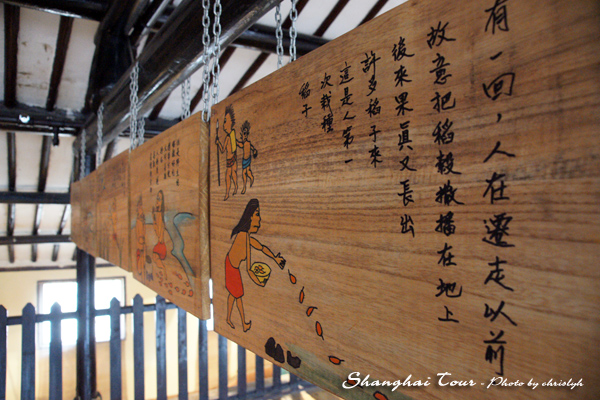 有一回，人在遷走以前
故意把稻穀撒播在地上
後來果真又長出
許多稻子來
這是人第一
次栽種
稻子
Shanghai Tour - Photo by chrislyh